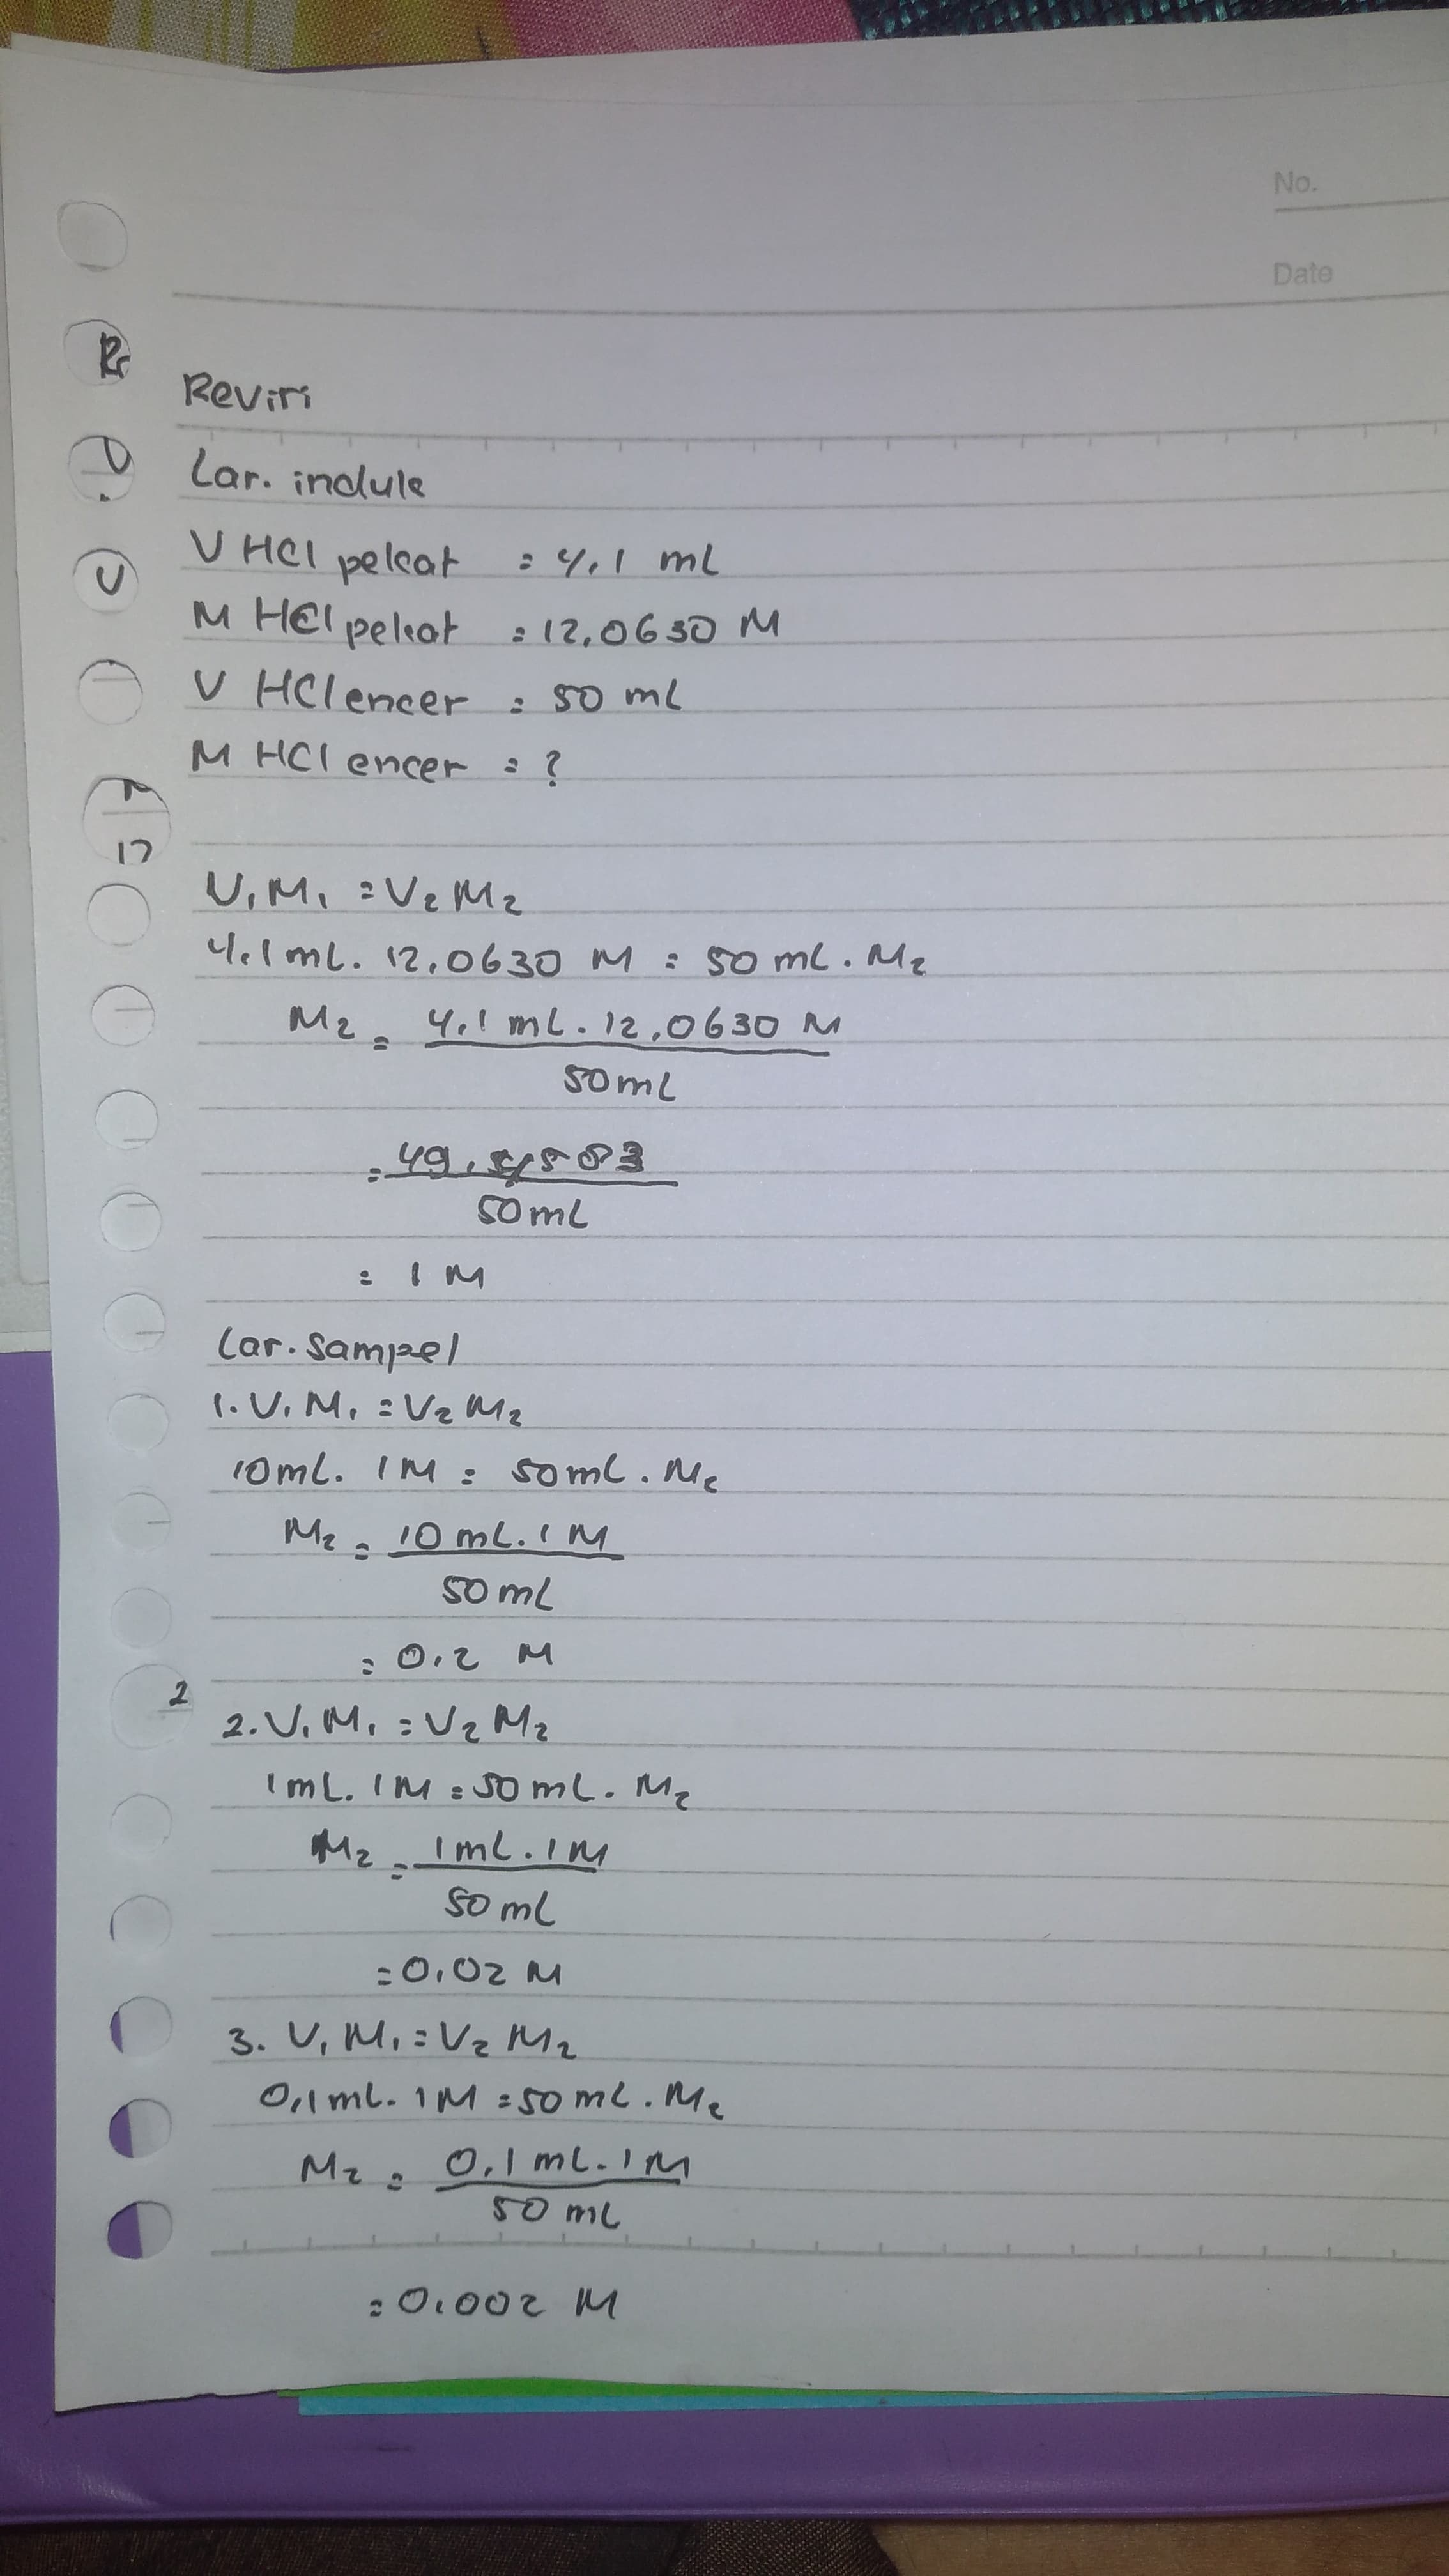 No.
Date
Revisi
Lar. induk
V HCl pekat = 4,1 mL
M HCl pekat = 12,0630 M
V HCl encer = 50 mL
M HCl encer = ?
V₁M₁ = V₂M₂
4,1 mL. 12,0630 M = 50 mL. M₂
M₂ = 4,1 mL. 12,0630 M
50 mL
=
50 mL
= 1 M
Lar. Sampel
1. V₁M₁ = V₂M₂
10 mL. 1 M = 50 mL. M₂
M₂ = 10 mL. 1 M
50 mL
= 0,2 M
2
2. V₁M₁ = V₂M₂
1 mL. 1 M = 50 mL. M₂
M₂ = 1 mL. 1 M
50 mL
= 0,02 M
3. V₁M₁ = V₂M₂
0,1 mL. 1 M = 50 mL. M₂
M₂ = 0,1 mL. 1 M
50 mL
= 0,002 M